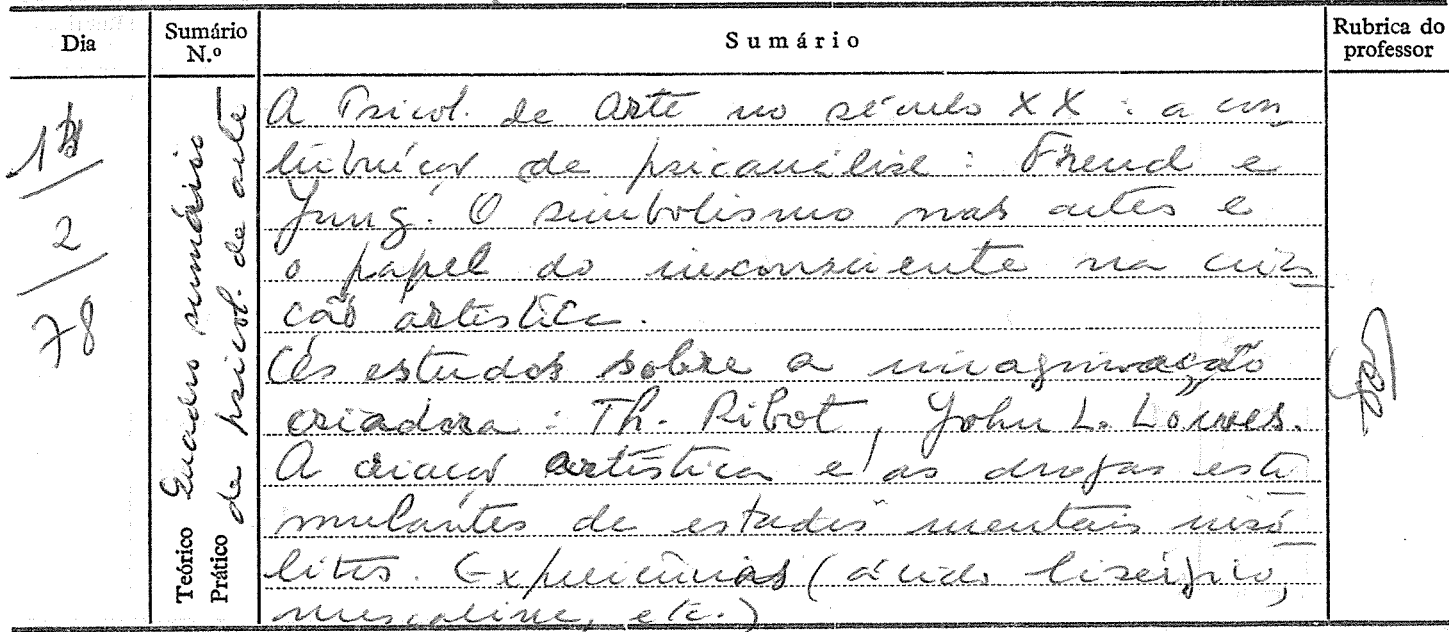 Dia
Sumário N.º
Sumário
Rubrica do professor
2
78
Teórico
Prático
Quadro sumário
de psicol. de arte
A Psicol. de Arte no século XX : a con
tribuição de psicanálise : Freud e
Jung. O simbolismo nas artes e
o papel do inconsciente na cria
ção artística.
Os estudos sobre a imaginação
criadora : Th. Ribot, John L. Lowes.
A criação artística e as drogas esti
mulantes de estados mentais insó
litos. Experiências (ácido lisérgico,
mescaline, etc.)